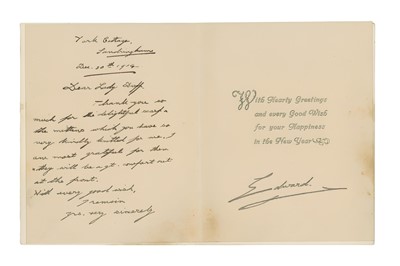 York Cottage,
Sandringham
Dec. 30th 1914.
Dear Lady Duff.
Thank you so
much for the delightful scarf &
the mittens which you have so
very kindly knitted for me. I
am most grateful for them
& they will be a gt. comfort out
at the front.
With every good wish,
I remain
yrs. very sincerely
With Hearty Greetings
and every Good Wish
for your Happiness
in the New Year
Edward.